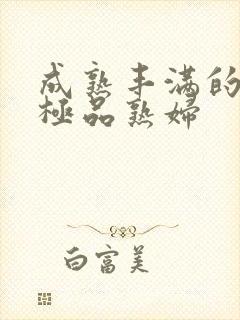 成熟丰满的
極品熟婦
白富美